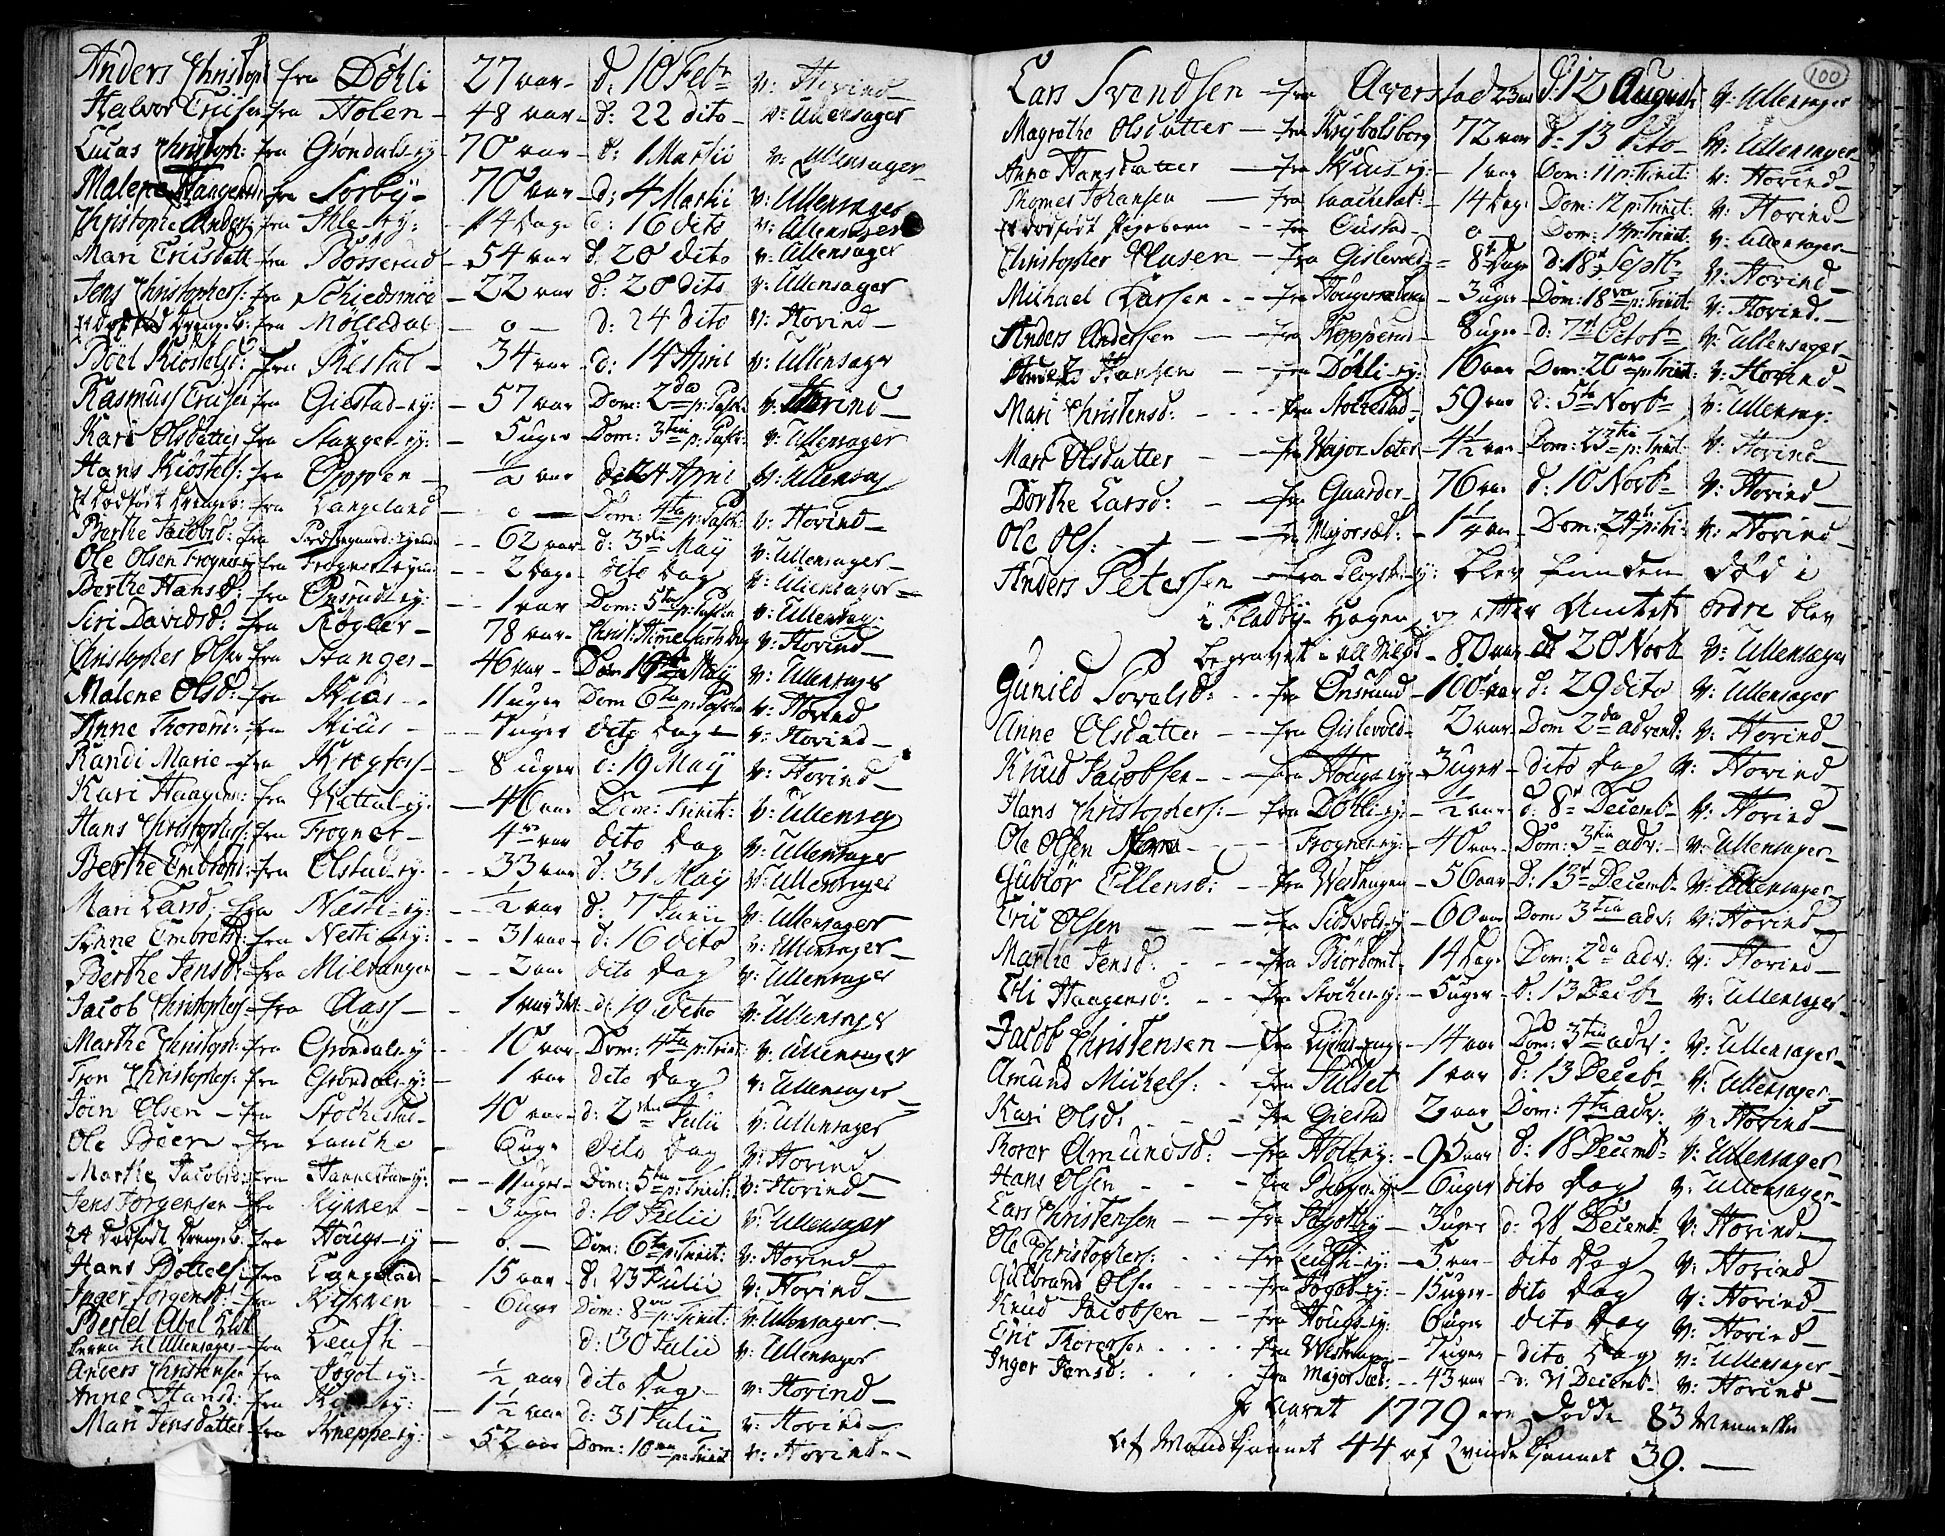 Anders Christoph: fra Döhli 27 aar d: 10 Feb: v: Hovind
Halvor Ericsen fra Holen 48 aar d: 22 dito v: Ullensager
Lucas Christoph: fra Gröndals-ey: 70 aar d: 1 Martii v: Ullensager
Malene Haagensd: fra Sörby 70 aar d: 4 Martii v: Ullensager
Christophe Anders: fra Ihle-ey: 14 Dage d: 16 dito v: Ullensager
Mari Ericsdatt: fra Bösserud 54 aar d: 20 dito v: Ullensager
Jens Christophers: fra Schiedsmöe 22 aar d: 20 dito v: Ullensager
Et dödföd Drengeb: fra Mölledal 0 d: 24 dito v: Hovind
Böel Kiöstelsd: fra Ristal 34 aar d: 14 April v: Ullensager
Rasmus Ericsen fra Giestad-ey: 57 aar Dom: 2da p: Pasch: v: Hovind
Kari Olsdatter fra Stanger-ey: 5 uger Dom: 3tia p: Pasch: v: Ullensager
Hans Kiöstels: fra Oppen ½ aar dito 24 April v: Ullensag
Et Dödfödt Drengeb: fra Langeland 0 Dom: 4ta p: Pasch: v: Hovind
Berthe Jacobsd: fra Præstegaard: Eyende 62 aar d: 3di May v: Ullensager
Ole Olsen Frogner-ey fra Frogner-eyende 2 Dage dito Dag v: Ullensager
Berthe Hansd: fra Onsrud-ey: 1 aar Dom: 5ta p: Pasch: v: Ullensag:
Siri Davidsd: fra Rögler 78 aar Christ: Himmelfarts Dag v: Hovind
Christopher Olsen fra Stanger 46 aar Dom 16 May v: Ullensager
Malene Olsd: fra Kiös 11 uger Dom 6ta p: Pasch v: Hovind
Anne Thorens: fra Kiös 7 uger dito Dag v: Hovind
Randi Marie fra Krogfos 8 uger d: 19 May v: Hovind
Kari Haagens: fra Wattal-ey: 46 aar Dom: Trinit: v: Ullensag
Hans Christophers: fra Frogner 4 aar dito Dag v: Ullensager
Berthe Embretsd: fra Olstad-ey: 33 aar d: 31 May v: Ullensager
Mari Larsd: fra Næsti-ey: ½ aar d: 7 Junii v: Ullensager
Anne Embretsd: fra Nesti-ey: 31 aar d: 16 dito v: Ullensager
Berthe Jensd: fra Milvangen 2 aar dito Dag v: Ullensager
Jacob Christophers: fra Aass 1 aar d: 19 dito v: Ullensager
Marthe Christoph: fra Gröndals-ey 10 aar Dom: 4ta p: Trinit: v: Ullensager
Tron Christophers: fra Gröndals-ey: 1 aar dito Dag v: Ullensager
Jöen Olsen fra Stochestad 40 aar d: 2den Julii v: Ullensager
Ole Been fra Lauche 6 uger dito Dag v: Hovind
Marthe Jacobsd: fra Hannestad-ey: 11 uger Dom: 5ta p: Trinit: v: Hovind
Jens Jörgensen fra Kykken 3 uger d: 10 Julii v: Ullensager
Et Dödfödt Drengeb. fra Hougs-ey 0 Dom: 6ta p: Trinit: v: Hovind
Hans Bottels: fra Langeland 15 aar d: 23 Julii v: Hovind
Inger Jörgensd: fra Kykken 6 uger Dom: 8va p: Trinit: v: Ullensager
Bertel Abel
til Ullensager fra Leufti d: 30 Julii v: Ullensager
Anders Christensen fra Fogot-ey: ½ aar dito Dag v: Hovind
Anne Hansd: fra 1½ aar d: 31 Julii v: Hovind
Mari Jensdatter fra Kneppe-ey: 52 aar Dom: 10ma p: Trinit v: Hovind
100
Lars Svendsen fra Averstad 23 aar d: 12 August: v: Ullensager
Magrethe Olsdatter fra Kribolsborg 72 aar d: 13 Dito v: Ullensager
Anne Hansdatter fra Kiös-ey: 1 aar Dom: 11 p: Trinit: v: Hovind
Thomes Johansen fra Lauchestal: 14 Dage Dom: 12 p: Trinit: v: Hovind
Et dödfödt Pigebarn fra Oustad 0 Dom: 14 p: Trinit: v: Ullensager
Christopher Clusen fra Gislevold 8te Dage d: 18 Septb: v: Hovind
Michael Larsen fra 3 uger Dom: 18va p: Trinit: v: Hovind
Anders Andersen fra Kepperud 8 uger d: 7 Octobr v: Ullensager
Anders Hansen fra Döhli-ey: 16 aar Dom: 20 p: Trinit: v: Hovind
Mari Christensd: fra Stochestad 59 aar d: 5te Novb: v: Ullensag:
Mari Olsdatter fra Major Sæter 4½ aar Dom: 23tia p: Trinit: v: Hovind
Dorthe Larsd: fra Gaarder 76 aar d: 10 Novb: v: Hovind
Ole Ols: fra Majorsæt: 1¼ aar Dom: 24 p: Tri: v: Hovind
Anders Petersen fra blev funden död i
i Fladby Hagen og efter Amtets ordre blev
begravet 80 aar d 20 Novb v: Ullensager
Gunild Povelsd: fra Onsrund 100 aar d: 29 dito v: Ullensager
Anne Olsdatter fra Gislevold 2 aar Dom 2da advent: v: Hovind
Knud Jacobsen fra Hougs-ey: 3 uger dito Dag v: Hovind
Hans Christophers: fra Döhli-ey: ½ aar d: 8 Decemb: v: Hovind
Ole Olsen Frogner-ey: 40 aar Dom: 3tia adv: v: Ullensager
Gubiör Ellensd: fra Westengen 56 aar d: 13 Decemb: v: Ullensager
Eric Olsen fra Eidsvols-ey 60 aar Dom 3tia adv: v: Hovind
Marthe Jensd: fra Biörtomt 14 Dage Dom: 2da adv: v: Hovind
Eli Haagensd: fra Stoche-ey: 5 uger d: 13 Decb: v: Ullensager
Jacob Christensen fra 14 aar Dom: 3tia adv: v: Ullensager
Amund Michels: fra Julset 1 aar d: 13 Deceb: v: Ullensager
Kari Olsd: fra Giestad 2 aar Dom: 4ta adv: v: Hovind
Amundsd: fra Holt-ey: 9 aar d: 18 Decemb: v: Ullensager
Hans Olsen fra 6 uger dito Dag v: Ullensager
Lars Christensen fra Fagott-ey 3 uger d: 28 Decemb: v: Hovind
Ole Christophers: fra Leufti-ey: 5 aar dito Dag v: Hovind
Gulbrand Olsen fra Fogot-ey: 15 uger dito Dag v: Hovind
Knud Jacobsen fra Hougs-ey: 6 uger dito Dag v: Hovind
Eric Thoresen fra Westengen 7 uger dito Dag v: Ullensager
Inger Jensd: fra Major Sæt: 43 aar d: 31 Decemb: v: Hovind
I Aaret 1779 ere Dödde 83 Mennisker
af Mandkiönnet 44 af Qvindekiönnet 39.